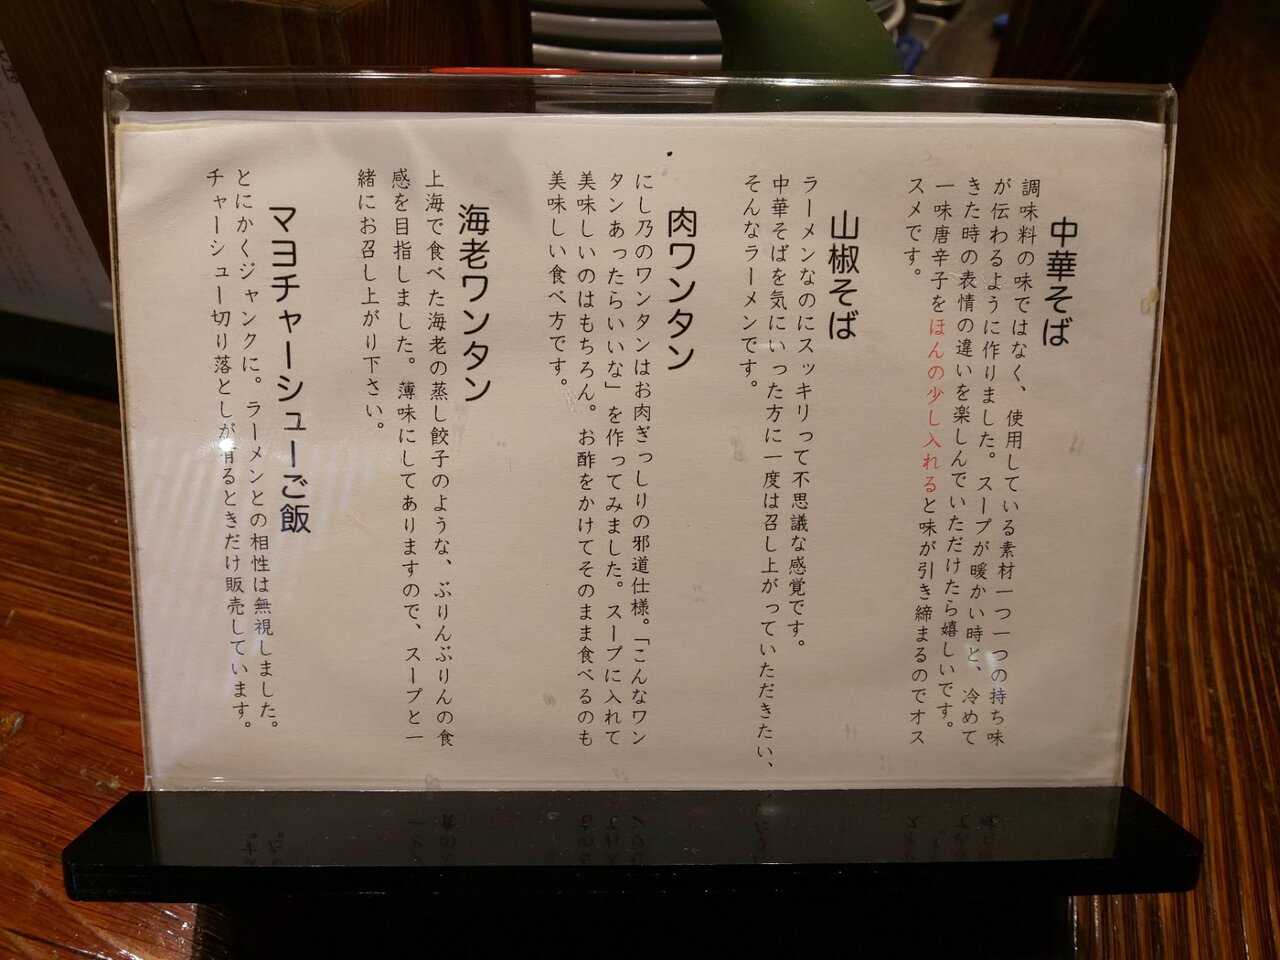 中華そば
調味料の味ではなく、使用している素材一つ一つの持ち味
が伝わるように作りました。スープが暖かい時と、冷めて
きた時の表情の違いを楽しんでいただけたら嬉しいです。
一味唐辛子をほんの少し入れると味が引き締まるのでオス
スメです。
山椒そば
ラーメンなのにスッキリって不思議な感覚です。
中華そばを気にいった方に一度は召し上がっていただきたい、
そんなラーメンです。
肉ワンタン
にし乃のワンタンはお肉ぎっしりの邪道仕様。「こんなワン
タンあったらいいな」を作ってみました。スープに入れて
美味しいのはもちろん。お酢をかけてそのまま食べるのも
美味しい食べ方です。
海老ワンタン
上海で食べた海老の蒸し餃子のような、ぷりんぷりんの食
感を目指しました。薄味にしてありますので、スープと一
緒にお召し上がり下さい。
マヨチャーシューご飯
とにかくジャンクに。ラーメンとの相性は無視しました。
チャーシュー切り落としが有るときだけ販売しています。